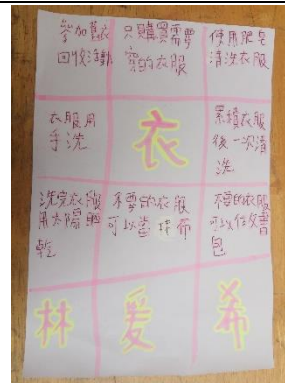 參加舊衣
回收活動
只購買需要
穿的衣服
使用肥皂
清洗衣服
衣服用
手洗
衣
累積衣服
後一次清
洗
洗完衣服
用太陽曬
乾
不要的衣服
可以當抹布
不穿的衣服
可以
包
林
爰
希